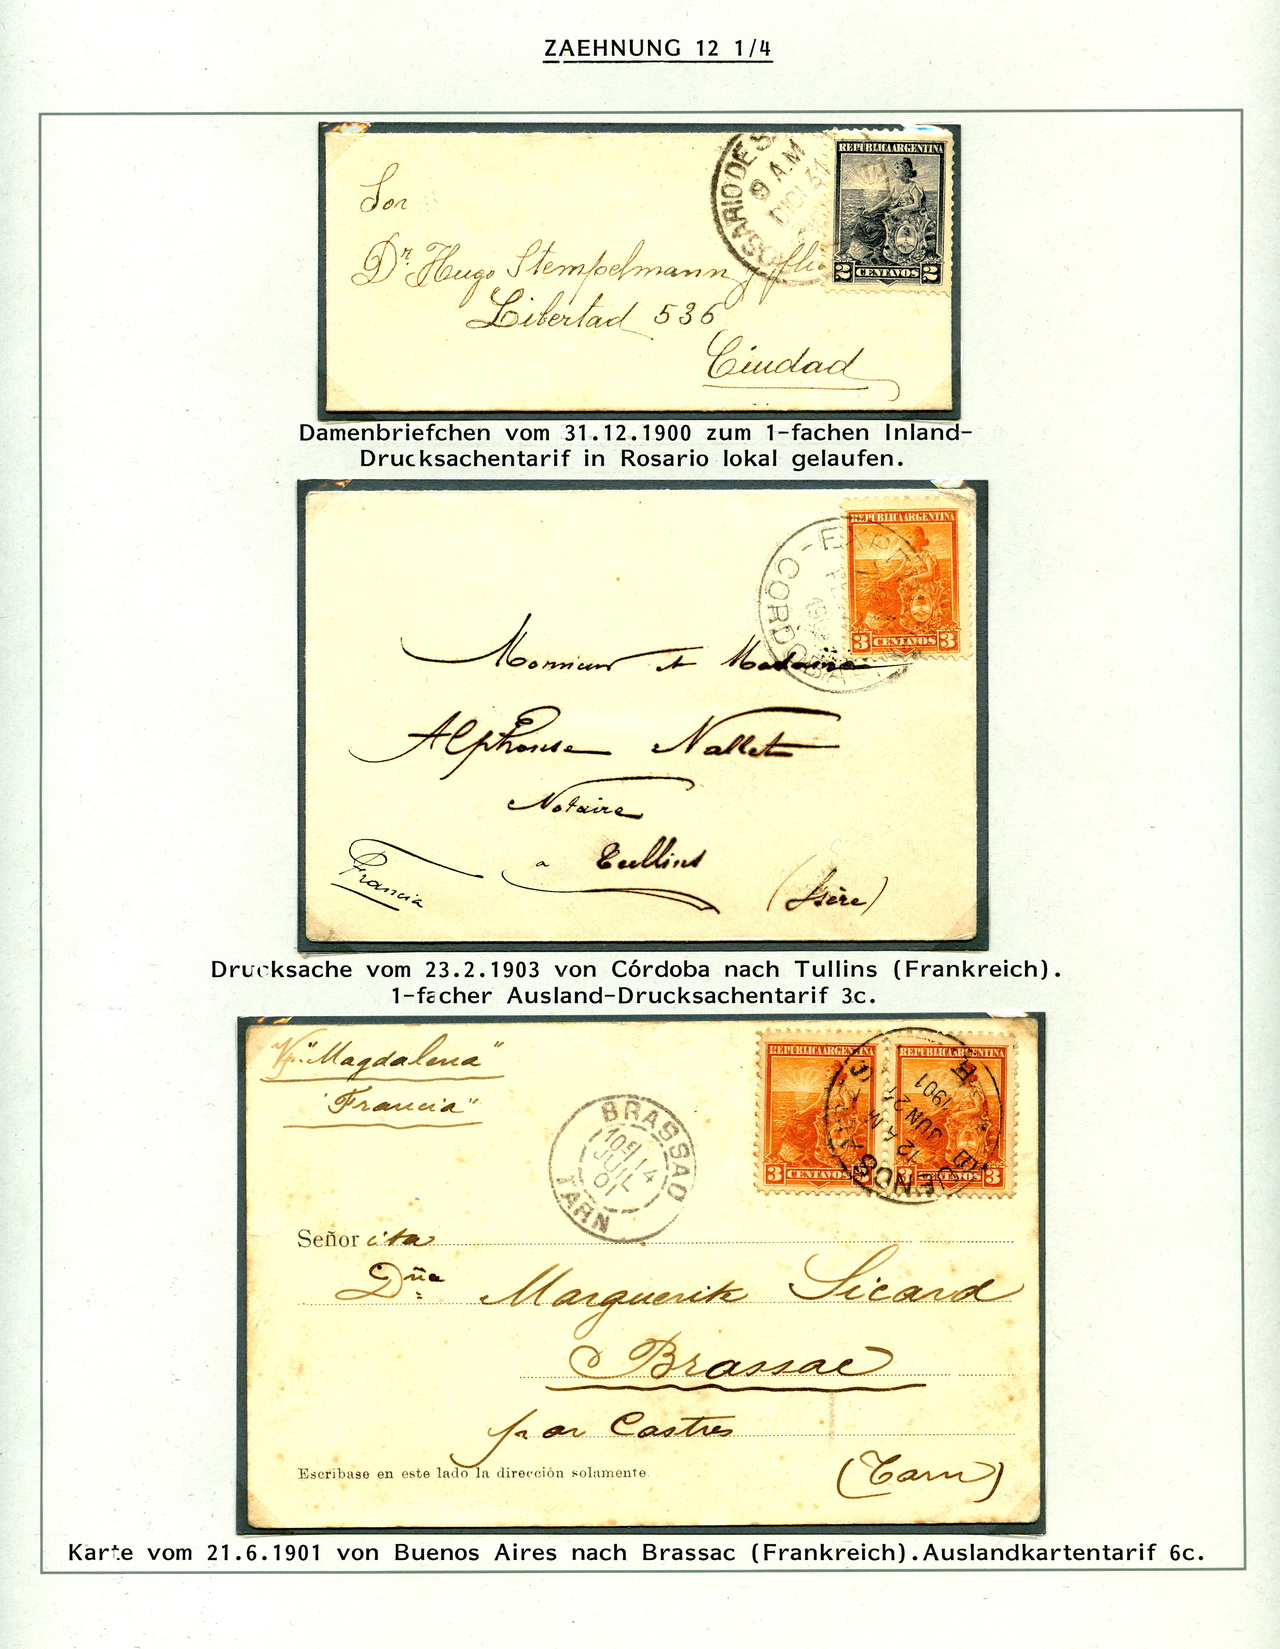 ZAEHNUNG 12 1/4
ROSARIO DE S
9 A.M
DIC 31
REPUBLICA ARGENTINA
2 CENTAVOS 2
Sor
Dr. Hugo Stempelmann y flia
Libertad 536
Ciudad
Damenbriefchen vom 31.12.1900 zum 1-fachen Inland-
Drucksachentarif in Rosario lokal gelaufen.
REPUBLICA ARGENTINA
3 CENTAVOS 3
CORDOBA
Monsieur et Madame
Alphonse Nallet
Notaire
a Tullins
Francia
(Isère)
Drucksache vom 23.2.1903 von Córdoba nach Tullins (Frankreich).
1-facher Ausland-Drucksachentarif 3c.
"Magdalena"
"Francia"
BRASSAC
10E/4
JUIL
01
TARN
REPUBLICA ARGENTINA
3 CENTAVOS 3
REPUBLICA ARGENTINA
3 CENTAVOS 3
BUENOS AIRES
12 AM
JUN 21
1901
Señorita
Dña Marguerite Sicard
Brassac
por Castres
Escribase en este lado la dirección solamente.
(Tarn)
Karte vom 21.6.1901 von Buenos Aires nach Brassac (Frankreich).Auslandkartentarif 6c.